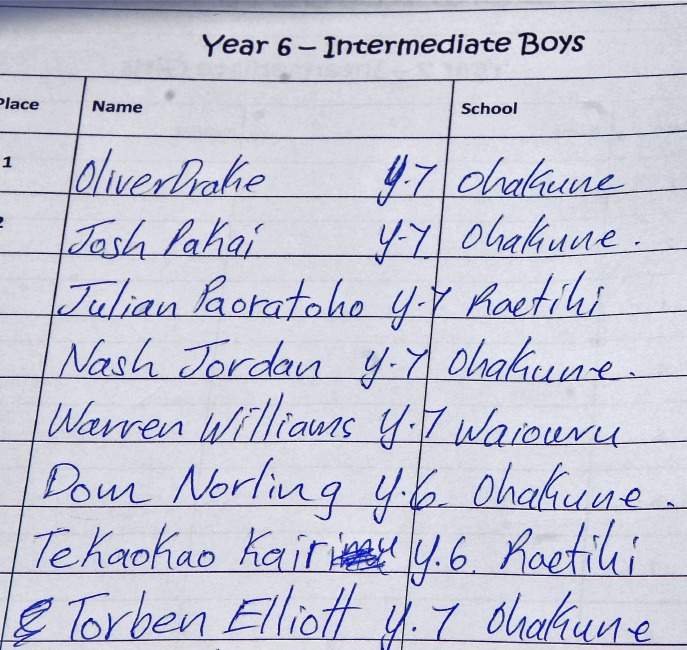 Year 6 – Intermediate Boys
Place Name School
1 Oliver Drake y.7 Ohakune
2 Josh Pakai y-7 Ohakune.
Julian Paoratoho y.7 Raetihi
Nash Jordan y.7 Ohakune.
Warren Williams y.7 Waiouru
Dom Norling y.6. Ohakune.
Tekaokao y.6. Raetihi
Torben Elliott y.7 Ohakune